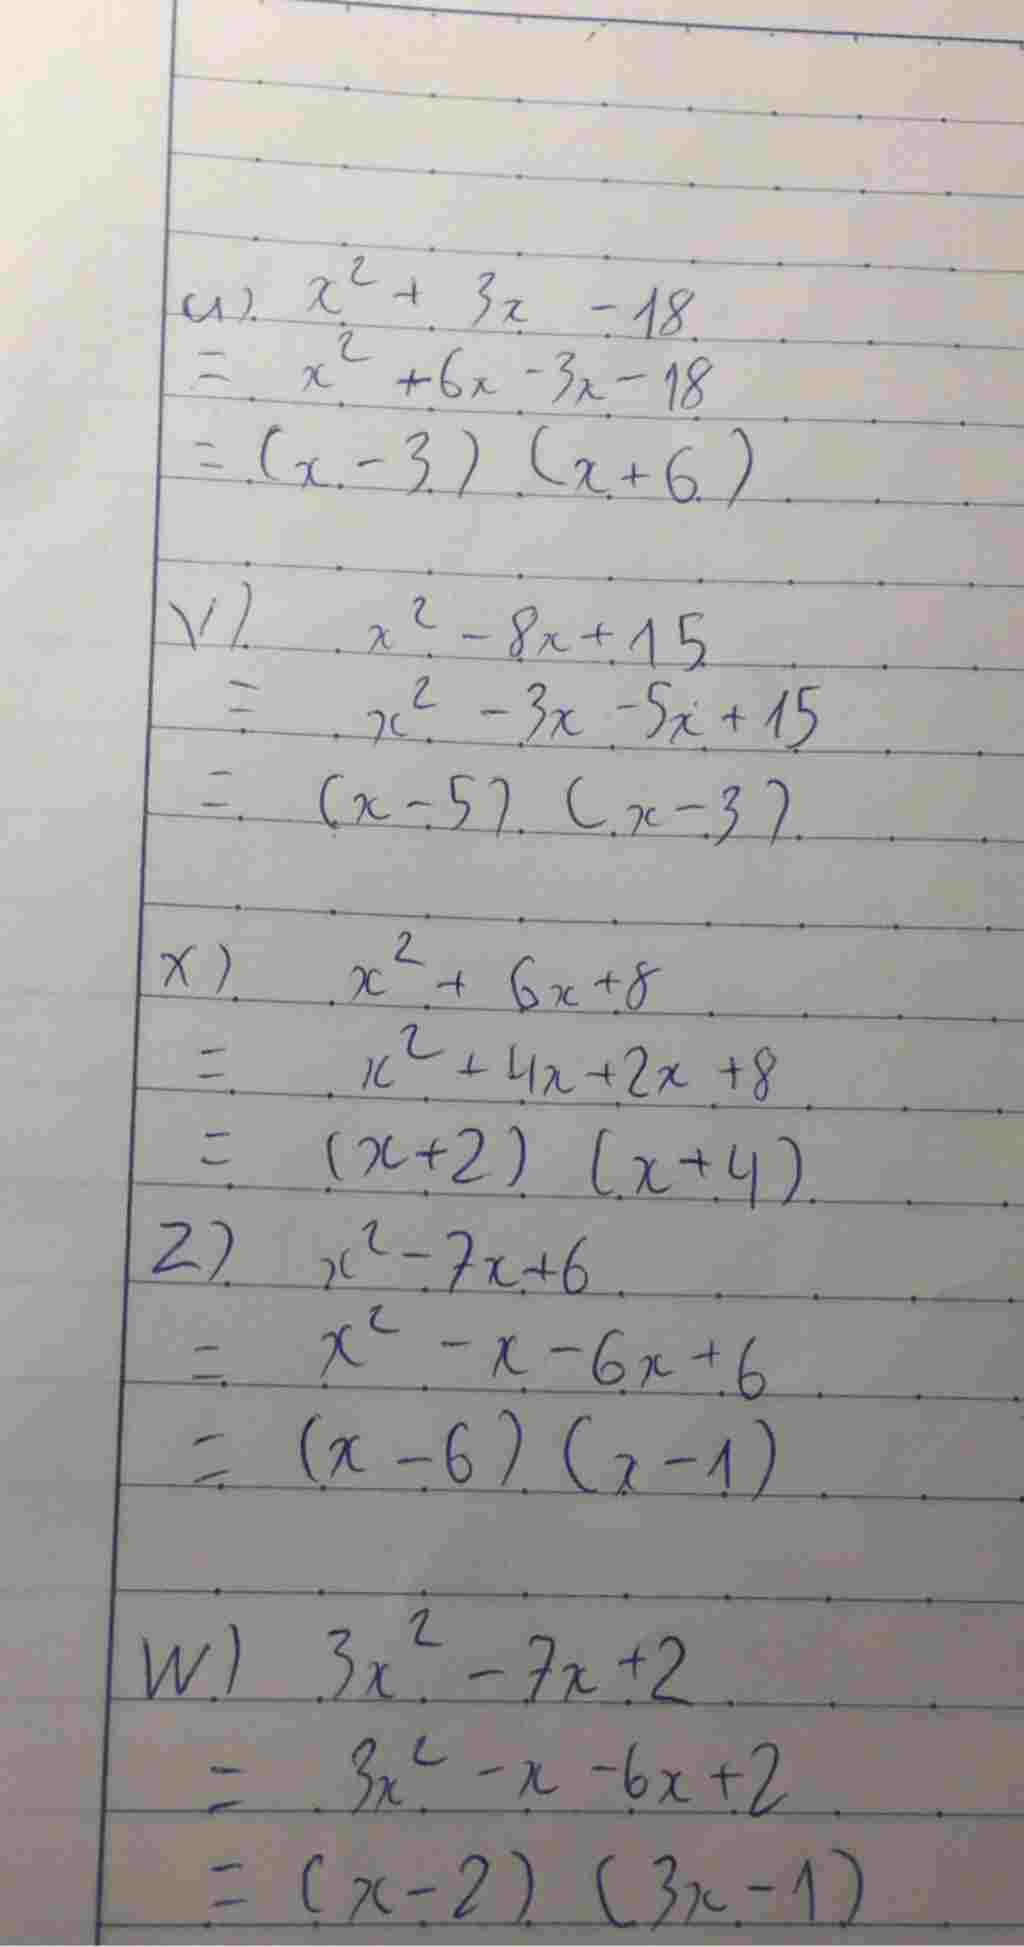 u) x² + 3x - 18
= x² + 6x - 3x - 18
= (x - 3) (x + 6)
v) x² - 8x + 15
= x² - 3x - 5x + 15
= (x - 5) (x - 3)
x) x² + 6x + 8
= x² + 4x + 2x + 8
= (x + 2) (x + 4)
z) x² - 7x + 6
= x² - x - 6x + 6
= (x - 6) (x - 1)
w) 3x² - 7x + 2
= 3x² - x - 6x + 2
= (x - 2) (3x - 1)